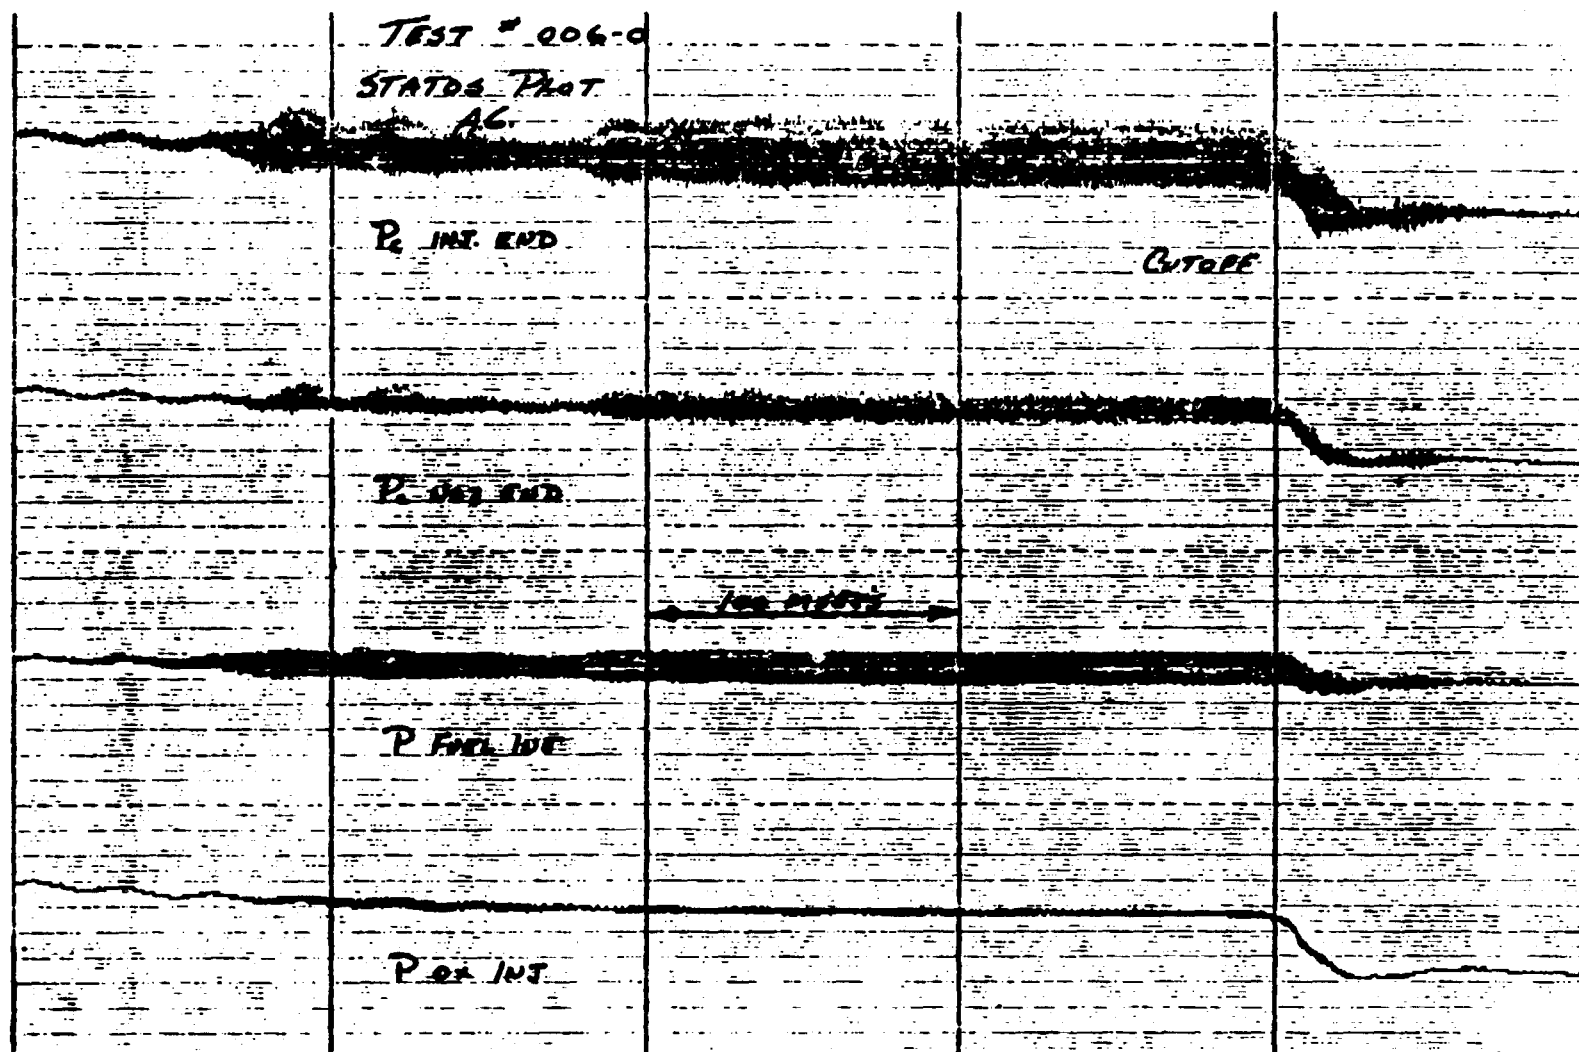 TEST # 006-0
STATOS PLOT
AC.
Pc INJ. END
CUTOFF
Pc NOZ END
100 MSECS
P FUEL INJ
P OX INJ